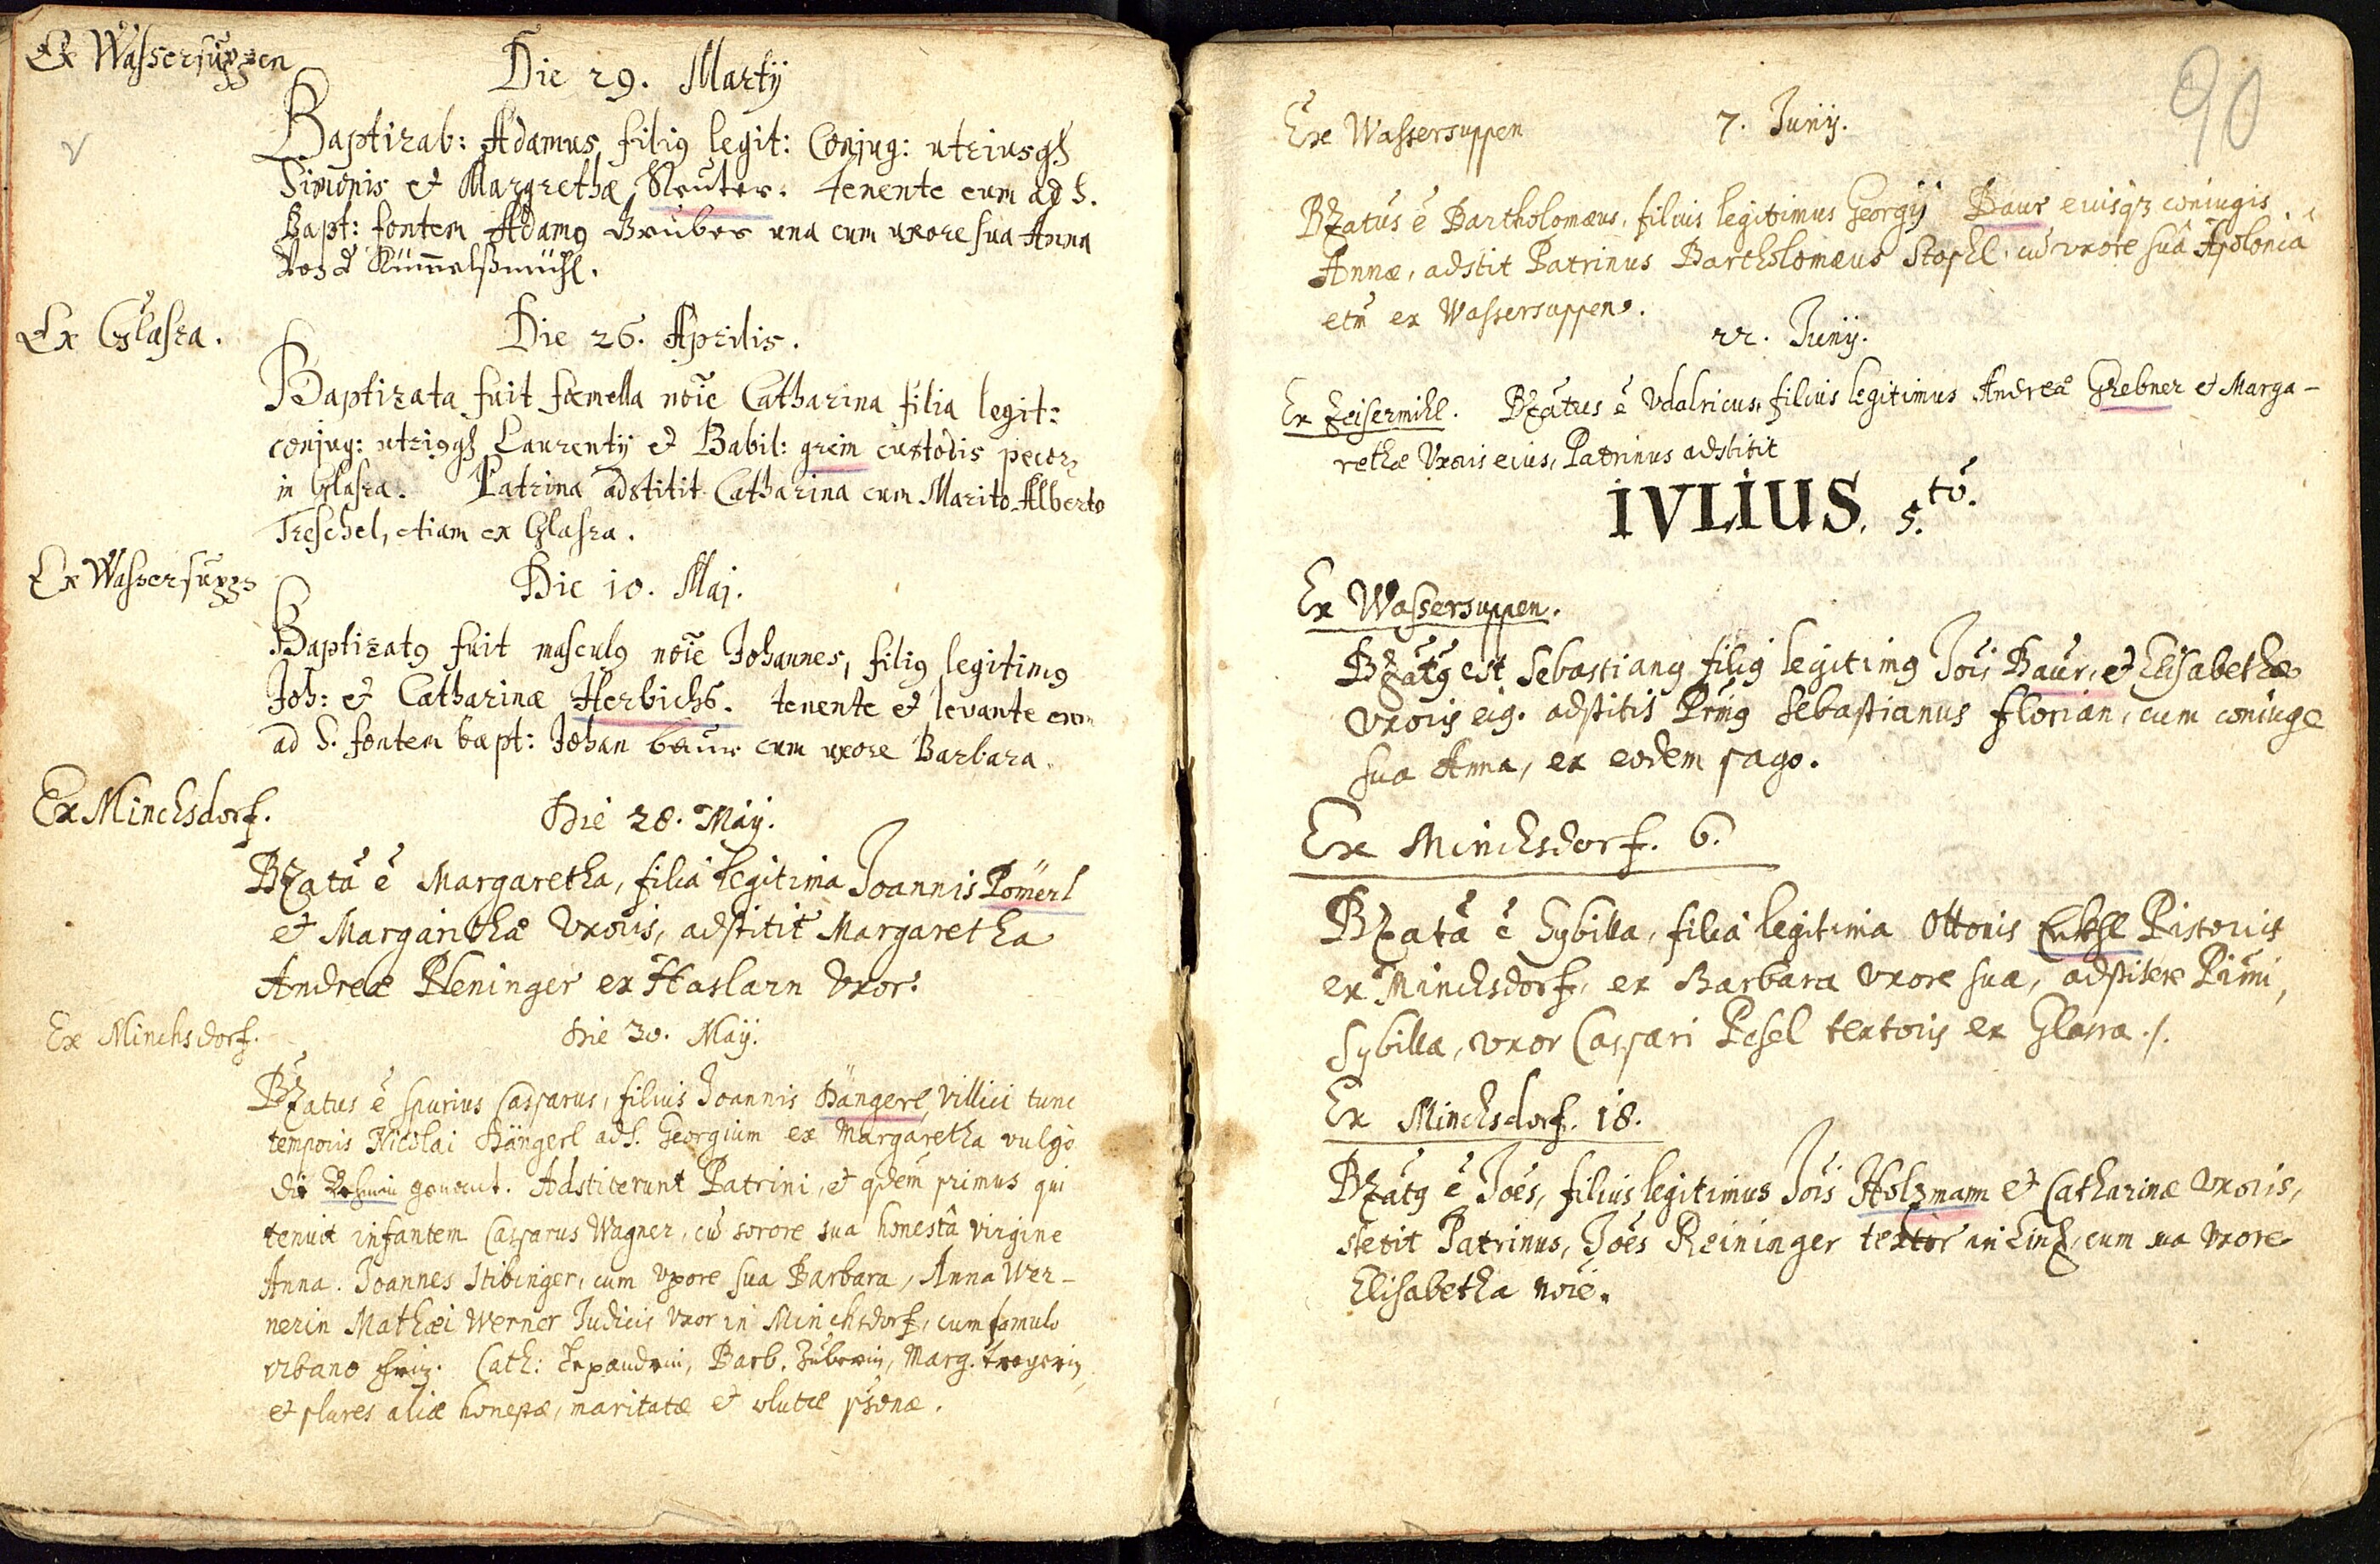 Ex Wassersuppen
Die 29. Martÿ
Baptizab: Adamus filig legit: Conjug: utriusqh
Simonis et Margrethæ Reuter. tenente eum ad S.
Bapt: fontem Adamg Gruber una cum uxore sua Anna
Vo d Kümelßmühl.
Ex Glasra.
Die 26. Aprilis.
Baptizata fuit fœmella noie Catharina filia legit:
conjug: utrigqh Laurentÿ et Babil: grein custodis pecor
in Glasra. Patrina adstitit Catharina cum Marito Alberto
Treschel, etiam ex Glasra.
Ex Wassersupp
Die 10. Maj.
Baptizatg fuit masculg noie Johannes, filig legitimg
Joh: et Catharinæ Herbichs. tenente et levante eum
ad S. fontem bapt: Johan baur cum uxore Barbara.
Ex Minchsdorf.
Die 28. Maÿ.
Bzata ē Margaretha, filia legitima Joannis Pömerl
et Margarithæ Vxoris, adstitit Margaretha
Andreæ Pleninger ex Haslarn Vxor:
Ex Minchsdorf.
Die 30. Maÿ.
Bzatus ē spurius Casparus, filius Joannis Hängerl, Villici tunc
temporis Nicolai Hängerl ad S. Georgium ex Margaretha vulgò
die genant. Adstiterunt Patrini, et qdem primus qui
tenuit infantem Casparus Wagner, cū sorore sua honestâ virgine
Anna. Joannes Stibinger, cum Vxore sua Barbara, Anna Wer-
nerin Mathæi Werner Judicis Vxor in Minchsdorf, cum famulo
Vrbano Cath: Barb. Zuberin, Marg. Tregerin,
et plures aliæ honestæ, maritatæ et solutæ psonæ.
90
Exe Wassersuppen
7. Junÿ.
Bzatus ē Bartholomæus, filius legitimus Georgÿ Baur eiusqz coniugis
Annæ, adstit Patrinus Bartholomæus Stophl cū vxore suâ Apoloniâ
etm ex Wassersuppen.
22. Junÿ.
Ex Zeisermihl. Bzatus ē Vdalricus, filius legitimus Andreæ Grebner et Marga-
rethæ Vxoris eius, Patrinus adstitit
IVLIUS. 5.to.
Ex Wassersuppen.
Bzatg est Sebastiang filig legitimg Jois Baur, et Elisabethæ
vxoris eig. adstitis Pring Sebastianus Florian, cum coniuge
sua Anna, ex eodem pago.
Exe Minchsdorf. 6.
Bzata ē Sybilla, filia legitima Ottonis Pistoris
ex Minchsdorf, ex Barbara Vxore sua, adstitere Prini,
Sybilla, vxor Caspari Pesel textoris ex Glasra ./.
Ex Minchsdorf. 18.
Bzatg ē Joēs, filius legitimus Jois Holzmann et Catharinæ Vxoris,
stetit Patrinus, Joēs Reininger textor in Linz, cum sua Vxore
Elisabetha noie.